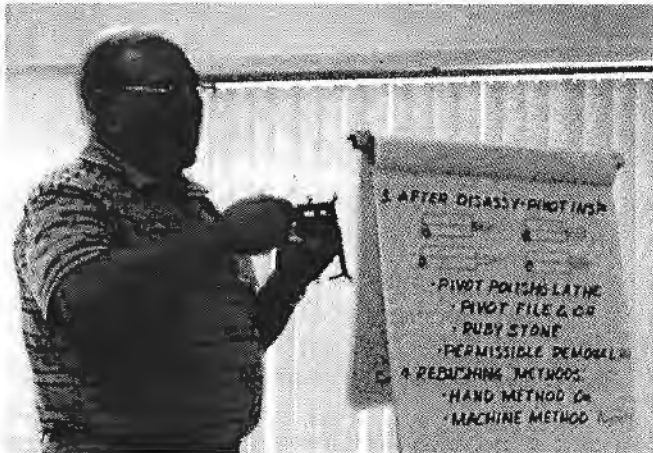 3. AFTER DISASSY-PIVOT INSP
· PIVOT POLISHG LATHE
· PIVOT FILE & OR
· RUBY STONE
· PERMISSIBLE REMOVAL
4. REBUSHING METHODS
· HAND METHOD OR
· MACHINE METHOD